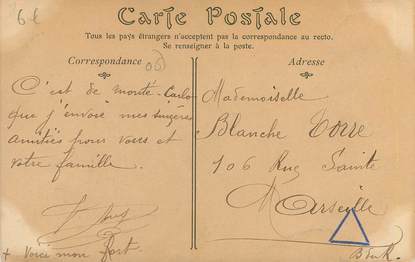 6l
Carte Postale
Tous les pays étrangers n'acceptent pas la correspondance au recto.
Se renseigner à la poste.
Correspondance
Adresse
C'est de monte-Carlo
que j'envoie mes sincères
amitiés pour vous et
votre famille
+ Voici mon fort.
Mademoiselle
Blanche Torre
106 Rue Sainte
Marseille